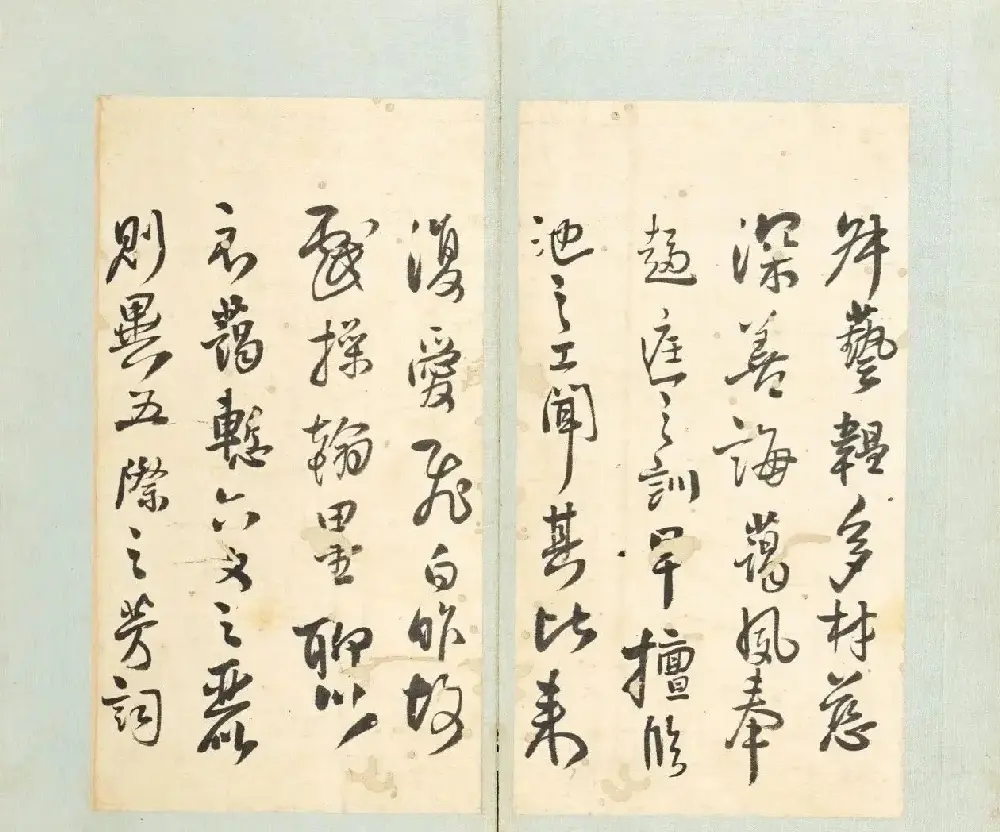 藝韞多材慈
深善誨藹夙奉
趍庭之訓早擅臨
池之工聞其比來
復愛飛白昨故
戲操翰墨聊以
示藹慙六文之麗
則異五際之芳詞